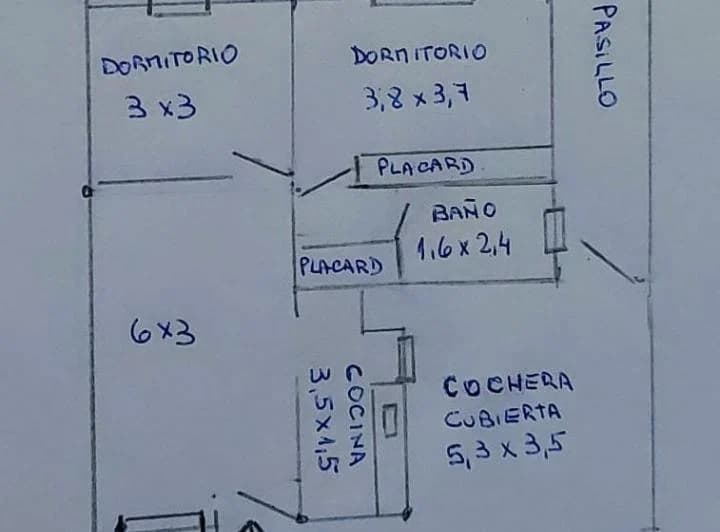 DORMITORIO
3 x 3
DORMITORIO
3,8 x 3,7
PASILLO
PLACARD.
BAÑO
1,6 x 2,4
PLACARD
6 x 3
COCINA
3,5 x 1,5
COCHERA
CUBIERTA
5,3 x 3,5